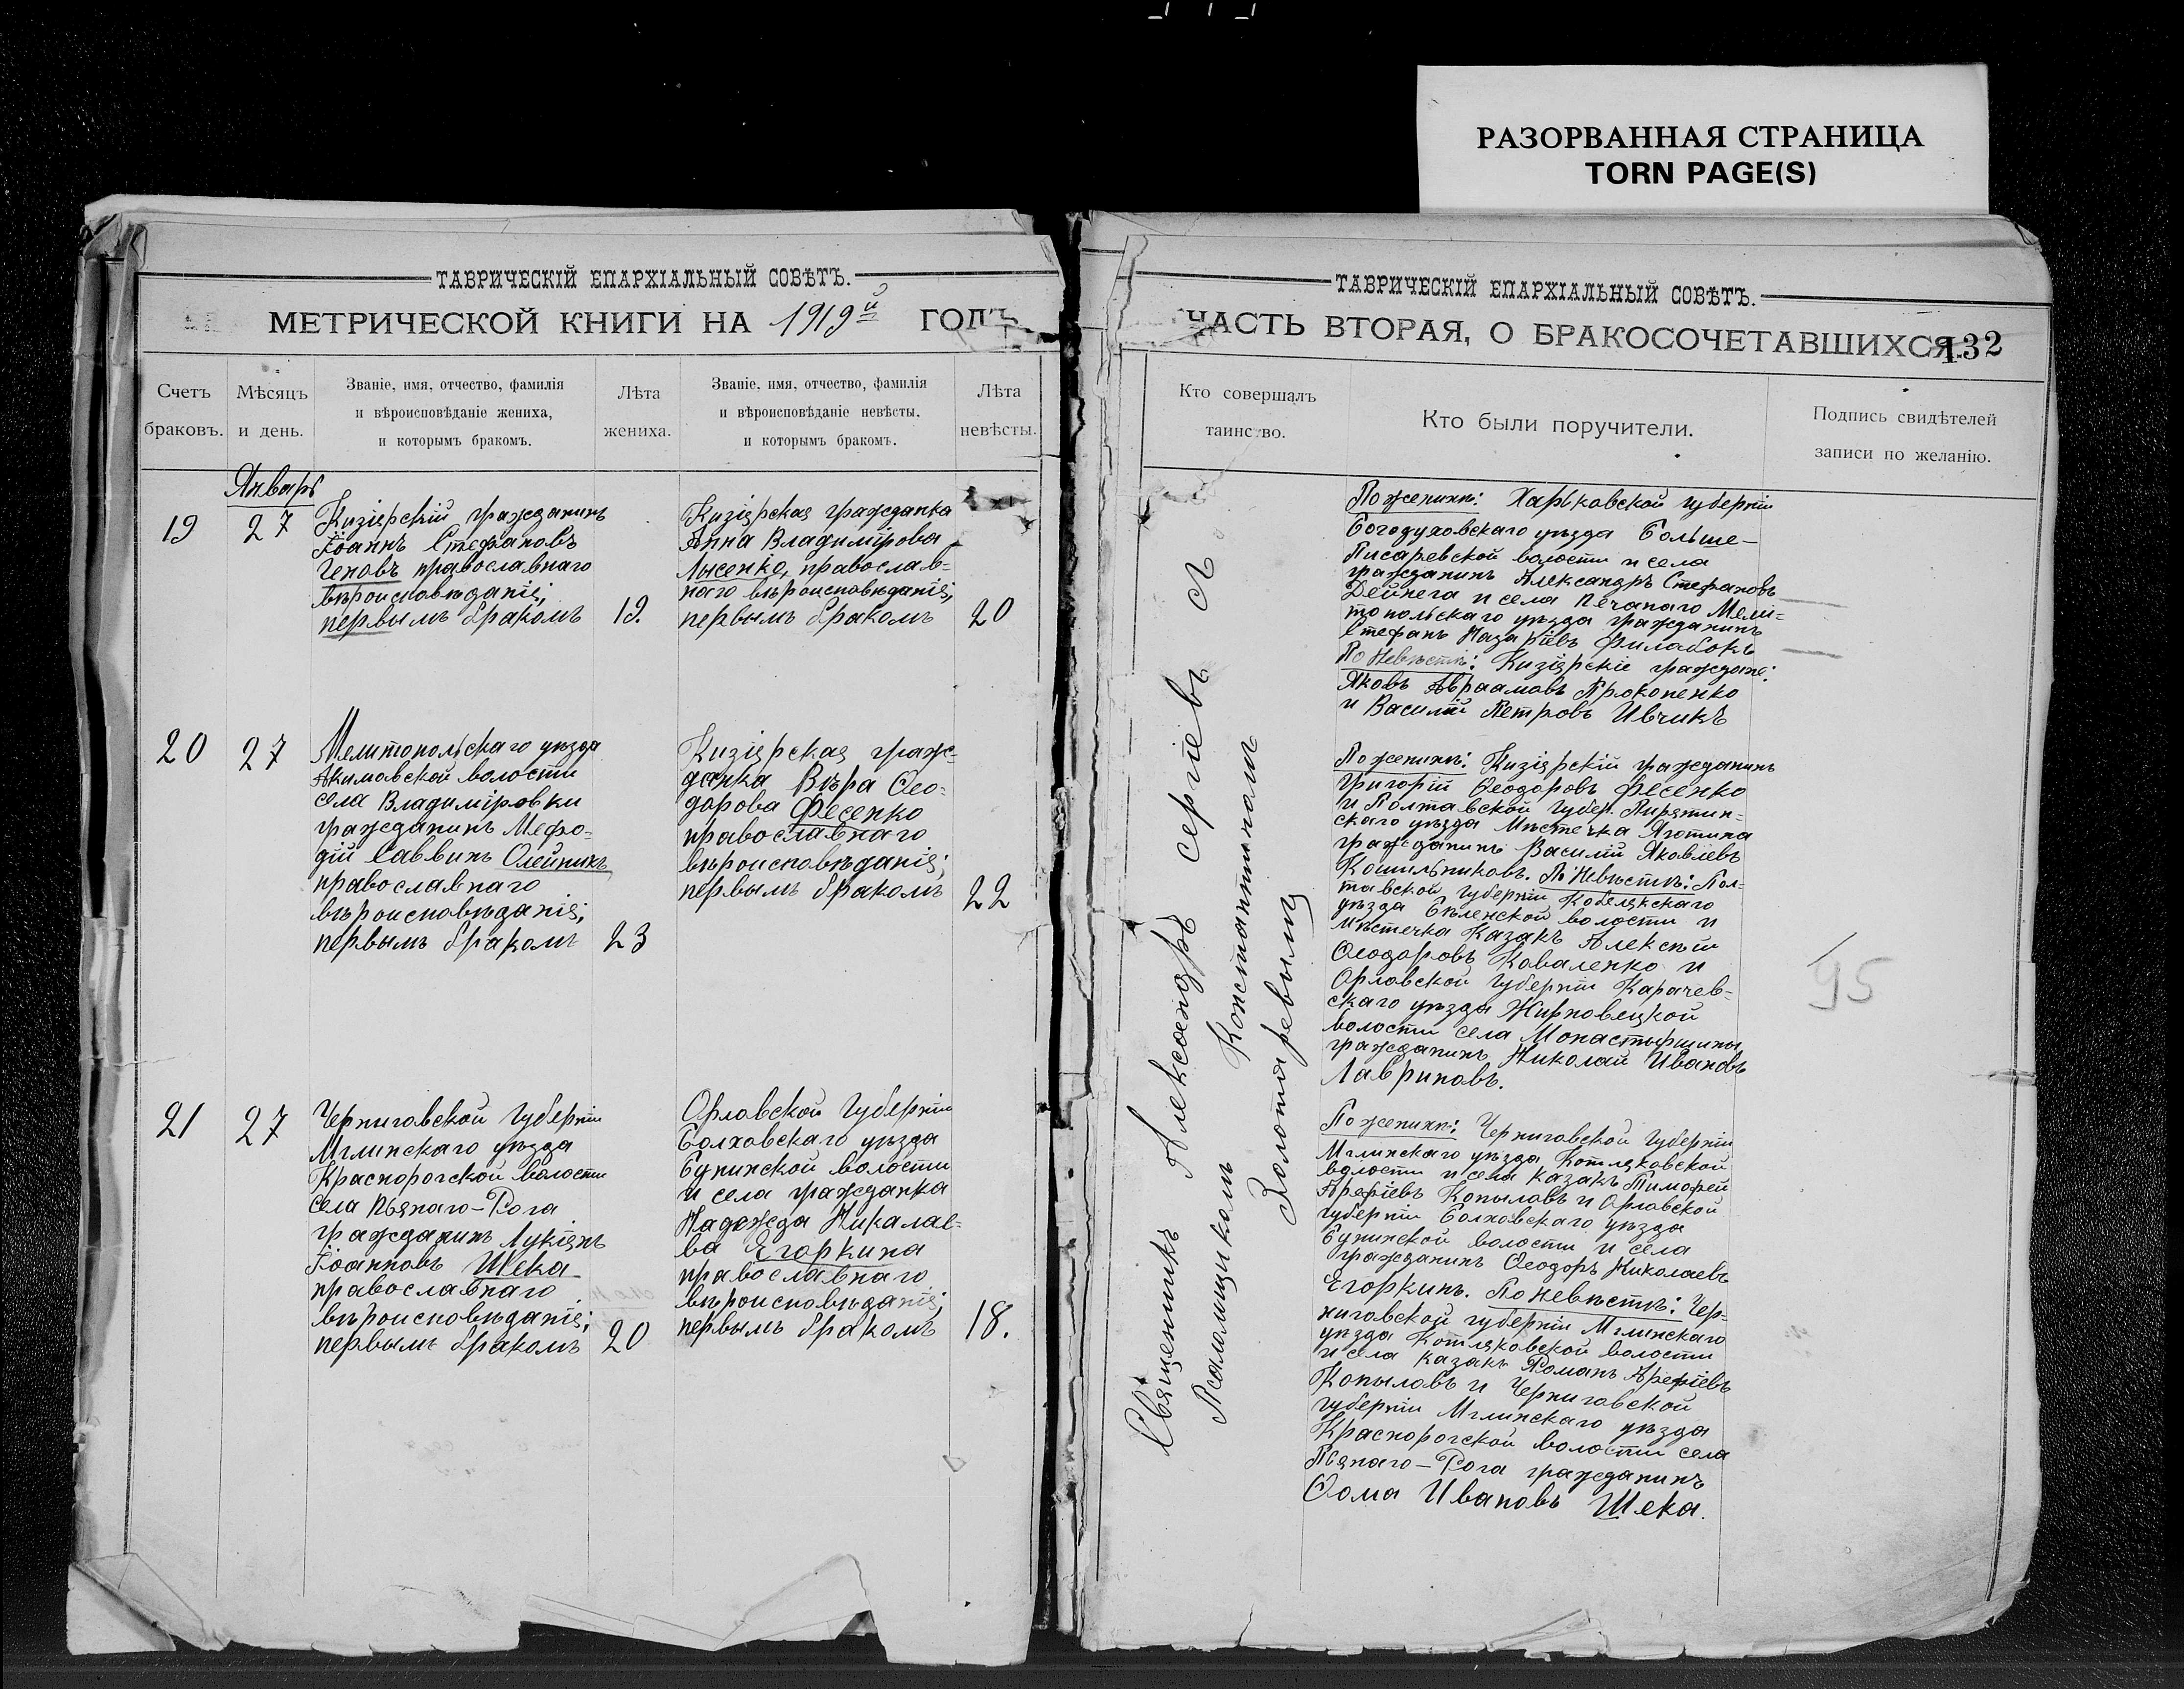 РАЗОРВАННАЯ СТРАНИЦА
TORN PAGE(S)
ТАВРИЧЕСКІЙ ЕПАРХІАЛЬНЫЙ СОВѢТЪ.
МЕТРИЧЕСКОЙ КНИГИ НА 1919й ГОДЪ
Счетъ браковъ.
Мѣсяцъ и день.
Званіе, имя, отчество, фамилія
и вѣроисповѣданіе жениха,
и которымъ бракомъ.
Лѣта
жениха.
Званіе, имя, отчество, фамилія
и вѣроисповѣданіе невѣсты,
и которымъ бракомъ.
Лѣта
невѣсты.
Январь
19
27
Кизіярскій гражданинъ
Іоаннъ Стефановъ
православнаго
вѣроисповѣданія;
первымъ бракомъ
19.
Кизіярская гражданка
Анна Владимірова
Лысенко, православ-
наго вѣроисповѣданія;
первымъ бракомъ
20
20
27
Мелитопольскаго уѣзда
Акимовской волости
села Владиміровки
гражданинъ Мефо-
дій Саввинъ Олейникъ
православнаго
вѣроисповѣданія;
первымъ бракомъ
23
Кизіярская граж-
данка Вѣра Ѳео-
дорова Фесенко
православнаго
вѣроисповѣданія;
первымъ бракомъ
22
21
27
Черниговской губерніи
Мглинскаго уѣзда
Краснорогской волости
села Пьянаго-Рога
гражданинъ Лукіянъ
Іоанновъ Шека
православнаго
вѣроисповѣданія;
первымъ бракомъ
20
Орловской губерніи
Болховскаго уѣзда
Бунинской волости
и села гражданка
Надежда Николае-
ва Егоркина
православнаго
вѣроисповѣданія;
первымъ бракомъ
18.
ТАВРИЧЕСКІЙ ЕПАРХІАЛЬНЫЙ СОВѢТЪ.
ЧАСТЬ ВТОРАЯ, О БРАКОСОЧЕТАВШИХСЯ.
132
Кто совершалъ
таинство.
Кто были поручители.
Подпись свидѣтелей
записи по желанію.
Священникъ Александръ Сергіевъ съ
Псаломщикомъ Константиномъ
Золотаревымъ
По женихѣ: Харьковской губерніи
Богодуховскаго уѣзда Больше-
Писаревской волости и села
гражданинъ Александръ Стефановъ
Дейнега и села Печанаго Мели-
топольскаго уѣзда гражданинъ
Стефанъ Назаріевъ Филабокъ
По Невѣстѣ: Кизіярскіе граждане:
Яковъ Авраамовъ Прокопенко
и Василій Петровъ Ивчикъ
По женихѣ: Кизіярскій гражданинъ
Григорій Ѳеодоровъ Фесенко
и Полтавской губер. Пирятин-
скаго уѣзда Мѣстечка Яготина
гражданинъ Василій Яковлевъ
Кошильниковъ. По Невѣстѣ: Пол-
тавской губерніи Кобеляскаго
уѣзда Бѣленской волости и
мѣстечка Казакъ Алексѣй
Ѳеодоровъ Коваленко и
Орловской губерніи Карачев-
скаго уѣзда
волости села Монастырщины
гражданинъ Николай Ивановъ
Лавриновъ.
95
По женихѣ: Черниговской губерніи
Мглинскаго уѣзда Котляковской
волости и села казакъ Тимофей
Арефіевъ Копыловъ и Орловской
губерніи Болховскаго уѣзда
Бунинской волости и села
гражданинъ Ѳеодоръ Николаевъ
Егоркинъ. По невѣстѣ: Чер-
ниговской губерніи Мглинскаго
уѣзда Котляковской волости
и села казакъ Романъ Арефіевъ
Копыловъ и Черниговской
губерніи Мглинскаго уѣзда
Краснорогской волости села
Пьянаго-Рога гражданинъ
Ѳома Ивановъ Шека.